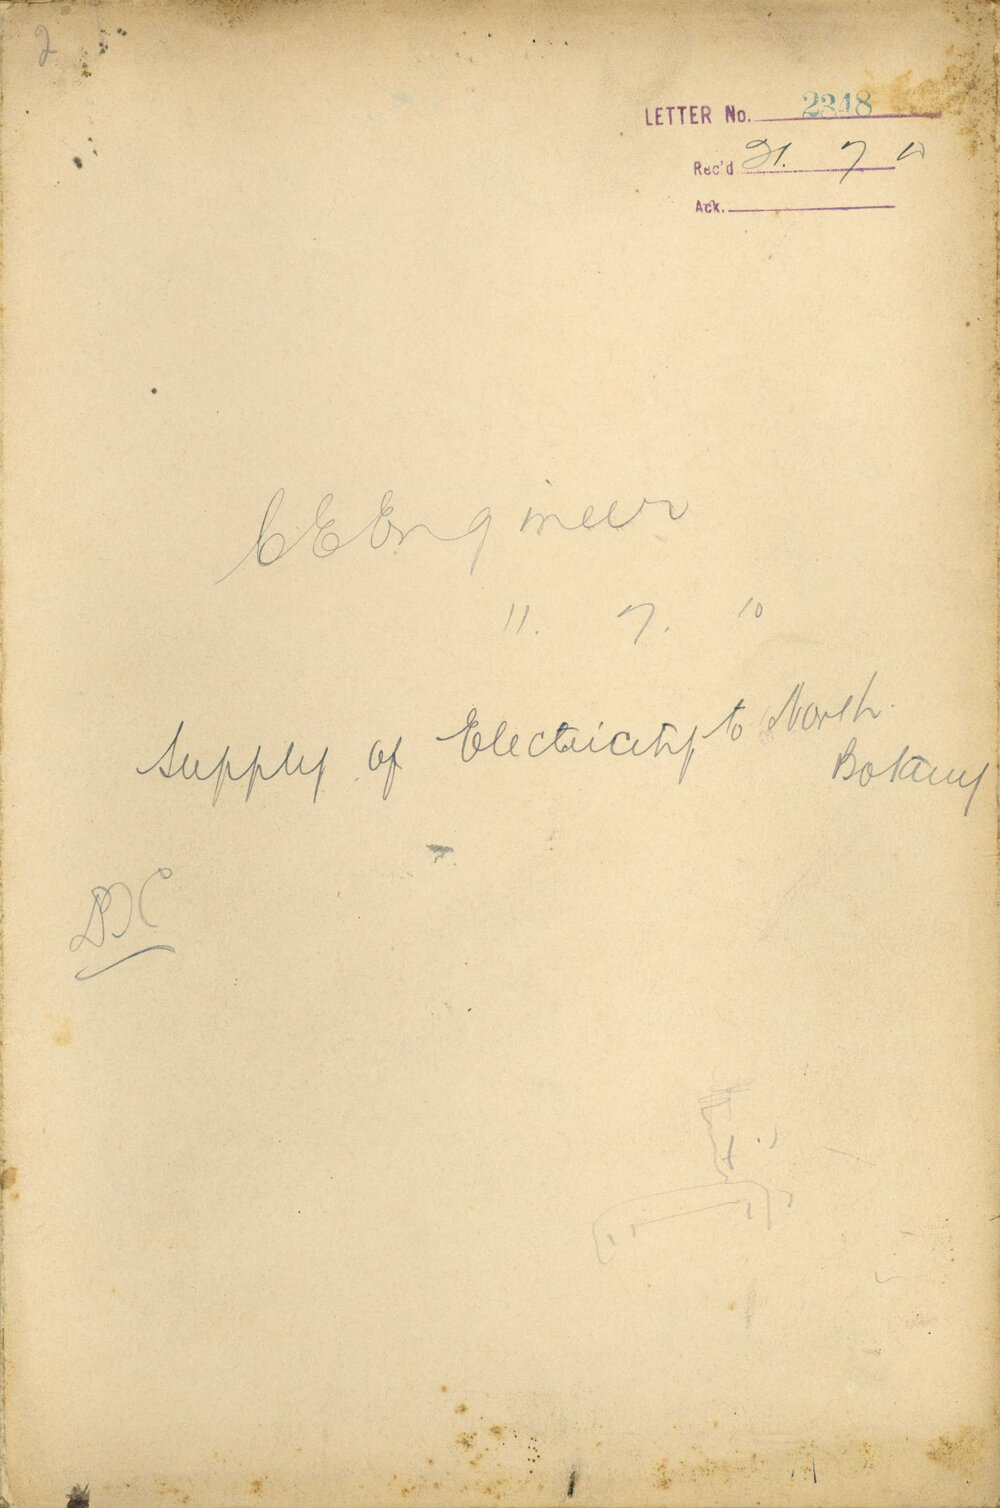 2
LETTER No. 2348
Rec'd 21. 7 10
Ack.
C E Engineer
11. 7. 10
Supply of Electricity to North
Botany